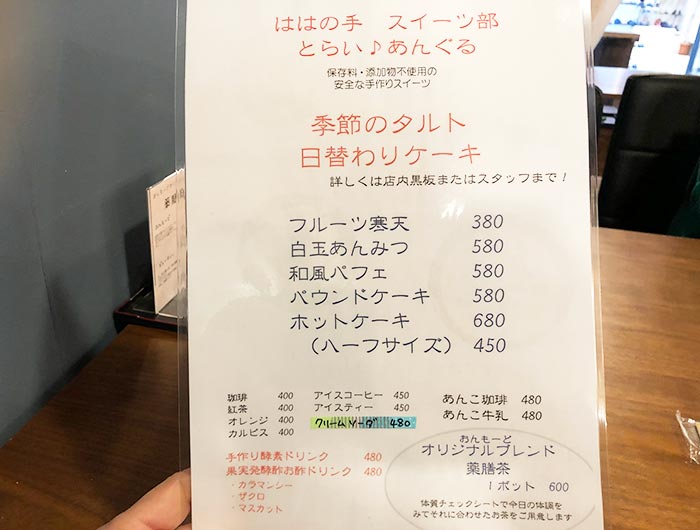 ははの手 スイーツ部
とらい♪あんぐる
保存料・添加物不使用の
安全な手作りスイーツ
季節のタルト
日替わりケーキ
詳しくは店内黒板またはスタッフまで!
フルーツ寒天 380
白玉あんみつ 580
和風パフェ 580
パウンドケーキ 580
ホットケーキ 680
(ハーフサイズ) 450
珈琲 400
紅茶 400
オレンジ 400
カルピス 400
アイスコーヒー 450
アイスティー 450
クリームソーダ 480
あんこ珈琲 480
あんこ牛乳 480
手作り酵素ドリンク 480
果実発酵酢お酢ドリンク 480
・カラマンシー
・ザクロ
・マスカット
おんもーど
オリジナルブレンド
薬膳茶
1ポット 600
体質チェックシートで今日の体調を
みてそれに合わせたお茶をご用意します